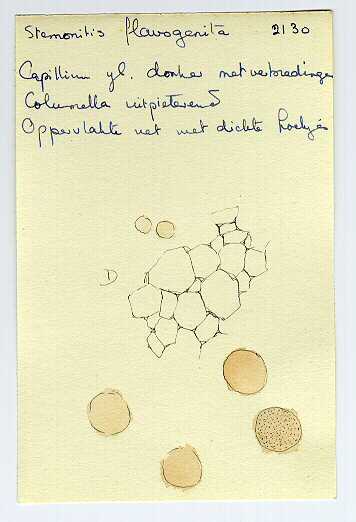 Stemonitis flavogenita 2130
Capillium yl. donker met verbredingen
Columella uitpieterend
Oppervlakte net met dichte hoekjes
D